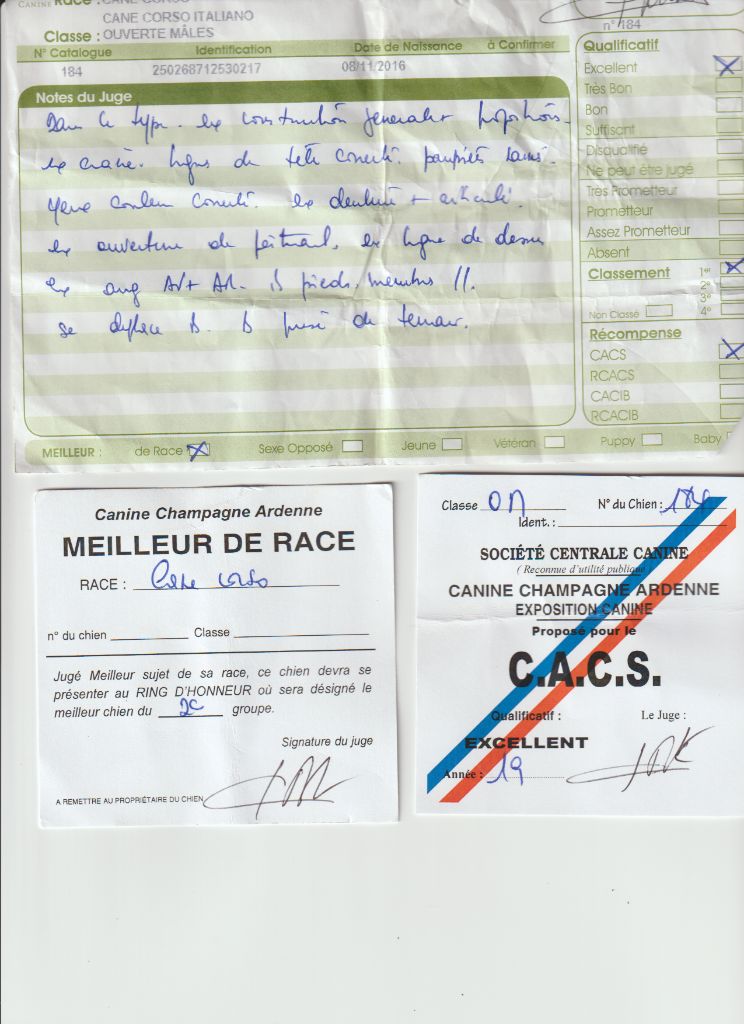 CANINE Race : CANE CORSO
CANE CORSO ITALIANO
Classe : OUVERTE MÂLES
n° 184
N° Catalogue Identification Date de Naissance à Confirmer
184 250268712530217 08/11/2016
Notes du Juge
Dans le type. ex construction générale + proportions.
ex crâne. lignes de tête correctes. paupières saines.
Yeux couleur correcte. ex denture + articulé.
ex ouverture de poitrail, ex ligne de dessus
ex ang AV + AR. B pieds, membres //.
se déplace B. B prise de terrain.
Qualificatif
Excellent X
Très Bon
Bon
Suffisant
Disqualifié
Ne peut être jugé
Très Prometteur
Prometteur
Assez Prometteur
Absent
Classement 1er X
2e
3e
Non Classé 4e
Récompense
CACS X
RCACS
CACIB
RCACIB
MEILLEUR : de Race X Sexe Opposé Jeune Vétéran Puppy Baby
Canine Champagne Ardenne
MEILLEUR DE RACE
RACE : Cane corso
n° du chien Classe
Jugé Meilleur sujet de sa race, ce chien devra se
présenter au RING D'HONNEUR où sera désigné le
meilleur chien du 2e groupe.
Signature du juge
A REMETTRE AU PROPRIÉTAIRE DU CHIEN
Classe OM N° du Chien : 184
Ident. :
SOCIÉTÉ CENTRALE CANINE
( Reconnue d'utilité publique
CANINE CHAMPAGNE ARDENNE
EXPOSITION CANINE
Proposé pour le
C.A.C.S.
Qualificatif : Le Juge :
EXCELLENT
Année : 19